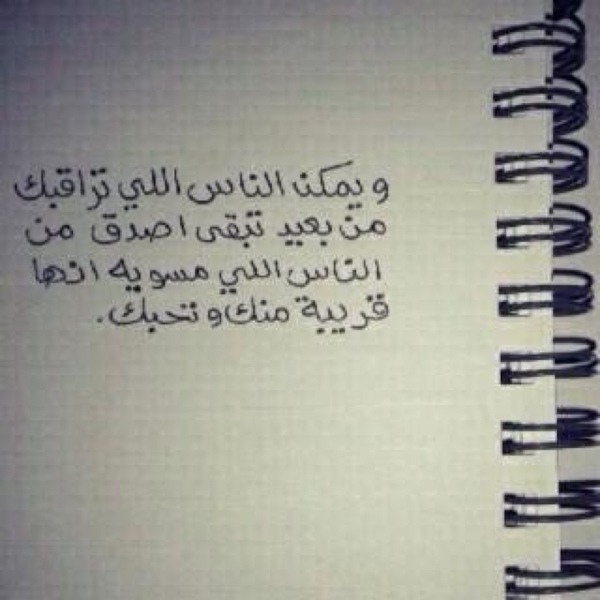 و يمكن الناس اللي تراقبك
من بعيد تبقى اصدق من
الناس اللي مسويه انها
قريبة منك و تحبك.